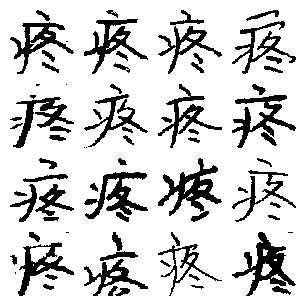 疼疼疼疼
疼疼疼疼
疼疼疼疼
疼疼疼疼